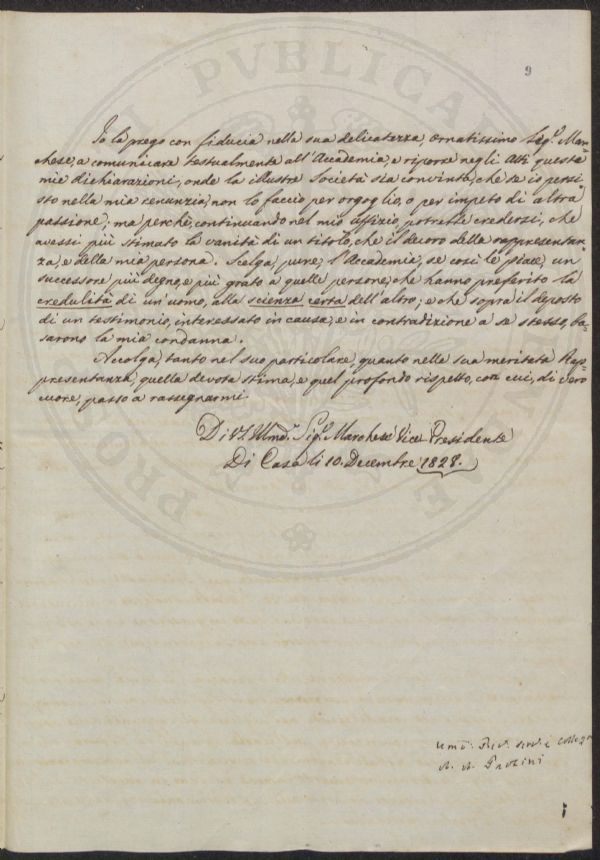 9
Io la prego con fiducia nella sua delicatezza, ornatissimo Sig.r Mar=
chese, a comunicare testualmente all'Accademia, e riporre negli Atti queste
mie dichiarazioni, onde la illustre Società sia convinta, che se io persi=
sto nella mia renunzia, non lo faccio per orgoglio, o per impeto di altra
passione; ma perchè, continuando nel mio uffizio, potrebbe credersi, che
avessi più stimato la vanità di un titolo, che il decoro della rappresentan=
za, e della mia persona. Scelga, pure, l'Accademia, se così le piace, un
successore più degno, e più grato a quelle persone, che hanno preferito la
credulità di un'uomo, alla scienza certa dell'altro; e che sopra il deposto
di un testimonio, interessato in causa, e in contradizione a se stesso, ba=
sarono la mia condanna.
Accolga, tanto nel suo particolare, quanto nella sua meritata Rap=
presentanza, quella devota stima, e quel profondo rispetto, con cui, di vero
cuore, passo a rassegnarmi.
Di V.S. Illma. Sig.r Marchese Vice Presidente
Di Casa li 10. Decembre 1828.
Collega
PVBLICA